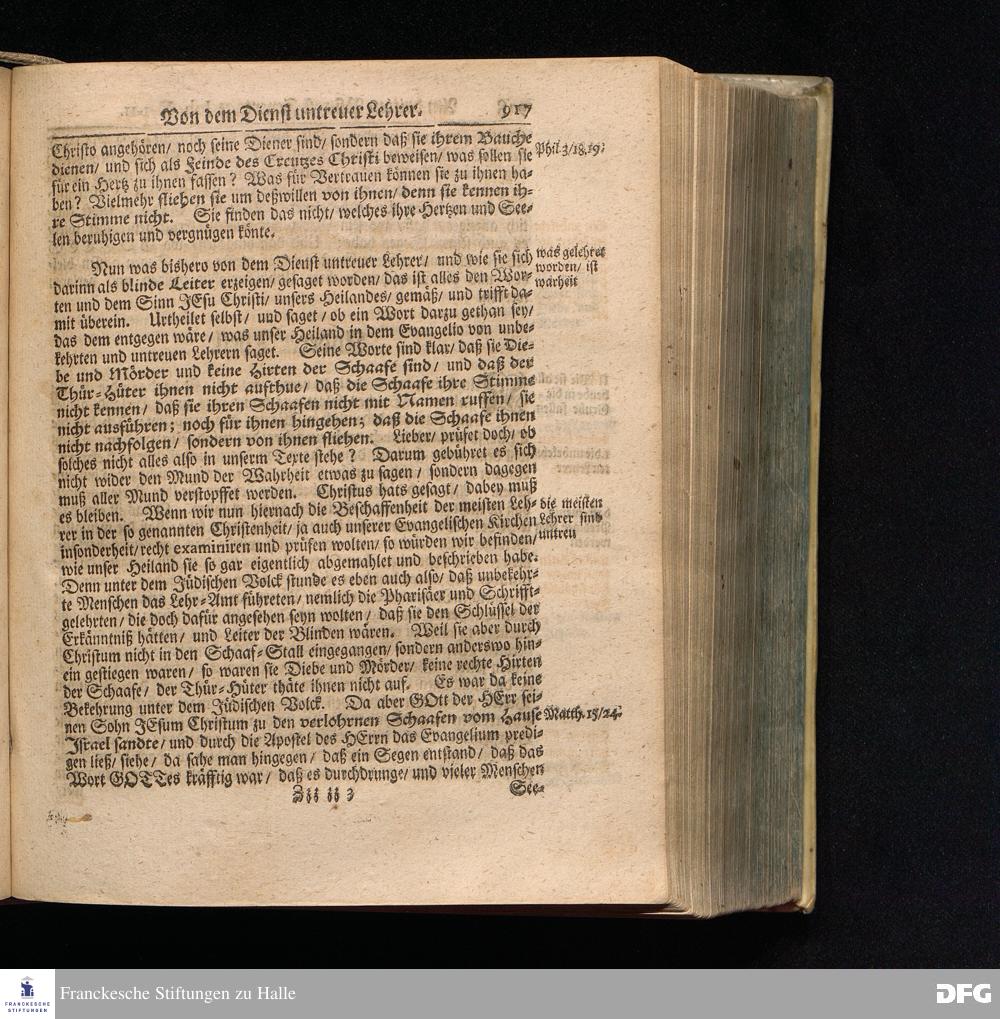 Von dem Dienst untreuer Lehrer. 917
Christo angehören/ noch seine Diener sind/ sondern daß sie ihrem Bauche
dienen/ und sich als Feinde des Creutzes Christi beweisen/ was sollen sie
für ein Hertz zu ihnen fassen? Was für Vertrauen können sie zu ihnen ha-
ben? Vielmehr fliehen sie um deßwillen von ihnen/ denn sie kennen ih-
re Stimme nicht. Sie finden das nicht/ welches ihre Hertzen und See-
len beruhigen und vergnügen könte.
Phil. 3/18.19;
Nun was bishero von dem Dienst untreuer Lehrer/ und wie sie sich
darinn als blinde Leiter erzeigen/ gesaget worden/ das ist alles den Wor-
ten und dem Sinn JEsu Christi/ unsers Heilandes/ gemäß/ und trifft da-
mit überein. Urtheilet selbst/ und saget/ ob ein Wort darzu gethan sey/
das dem entgegen wäre/ was unser Heiland in dem Evangelio von unbe-
kehrten und untreuen Lehrern saget. Seine Worte sind klar/ daß sie Die-
be und Mörder und keine Hirten der Schaafe sind/ und daß der
Thür-Hüter ihnen nicht aufthue/ daß die Schaafe ihre Stimme
nicht kennen/ daß sie ihren Schaafen nicht mit Namen ruffen/ sie
nicht ausführen; noch für ihnen hingehen; daß die Schaafe ihnen
nicht nachfolgen/ sondern von ihnen fliehen. Lieber/ prüfet doch/ ob
solches nicht alles also in unserm Texte stehe? Darum gebühret es sich
nicht wider den Mund der Wahrheit etwas zu sagen/ sondern dagegen
muß aller Mund verstopffet werden. Christus hats gesagt/ dabey muß
es bleiben. Wenn wir nun hiernach die Beschaffenheit der meisten Leh-
rer in der so genannten Christenheit/ ja auch unserer Evangelischen Kirchen
insonderheit/ recht examiniren und prüfen wolten/ so würden wir befinden/
wie unser Heiland sie so gar eigentlich abgemahlet und beschrieben habe.
Denn unter dem Jüdischen Volck stunde es eben auch also/ daß unbekehr-
te Menschen das Lehr-Amt führeten/ nemlich die Pharisäer und Schrifft-
gelehrten/ die doch dafür angesehen seyn wolten/ daß sie den Schlüssel der
Erkänntniß hätten/ und Leiter der Blinden wären. Weil sie aber durch
Christum nicht in den Schaaf-Stall eingegangen/ sondern anderswo hin-
ein gestiegen waren/ so waren sie Diebe und Mörder/ keine rechte Hirten
der Schaafe/ der Thür-Hüter thäte ihnen nicht auf. Es war da keine
Bekehrung unter dem Jüdischen Volck. Da aber GOtt der HErr sei-
nen Sohn JEsum Christum zu den verlohrnen Schaafen vom Hause
Israel sandte/ und durch die Apostel des HErrn das Evangelium predi-
gen ließ/ siehe/ da sahe man hingegen/ daß ein Segen entstand/ daß das
Wort GOTTes kräfftig war/ daß es durchdrunge/ und vieler Menschen
was gelehret
worden/ ist
warheit
die meisten
Lehrer sind
untreu
Matth. 15/24.
Zzz zz 3
See-
FRANCKESCHE
STIFTUNGEN
Franckesche Stiftungen zu Halle
DFG